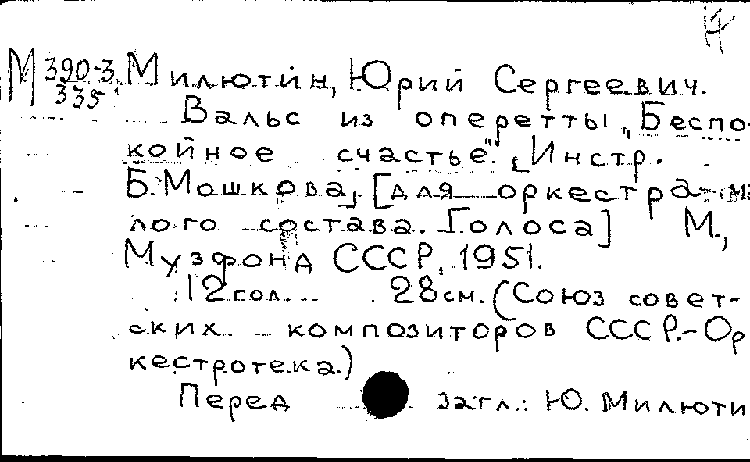 М 390-3 Милютин, Юрий Сергеевич.
335
Вальс из оперетты "Беспо-
койное счастье". [Инстр.
Б. Мошкова, [для оркестра ма-
лого состава. Голоса] М.,
Музфонд СССР, 1951.
12 гол. 28 см. (Союз совет-
ских композиторов СССР.-Ор
кестротека.)
Перед загл.: Ю. Милюти